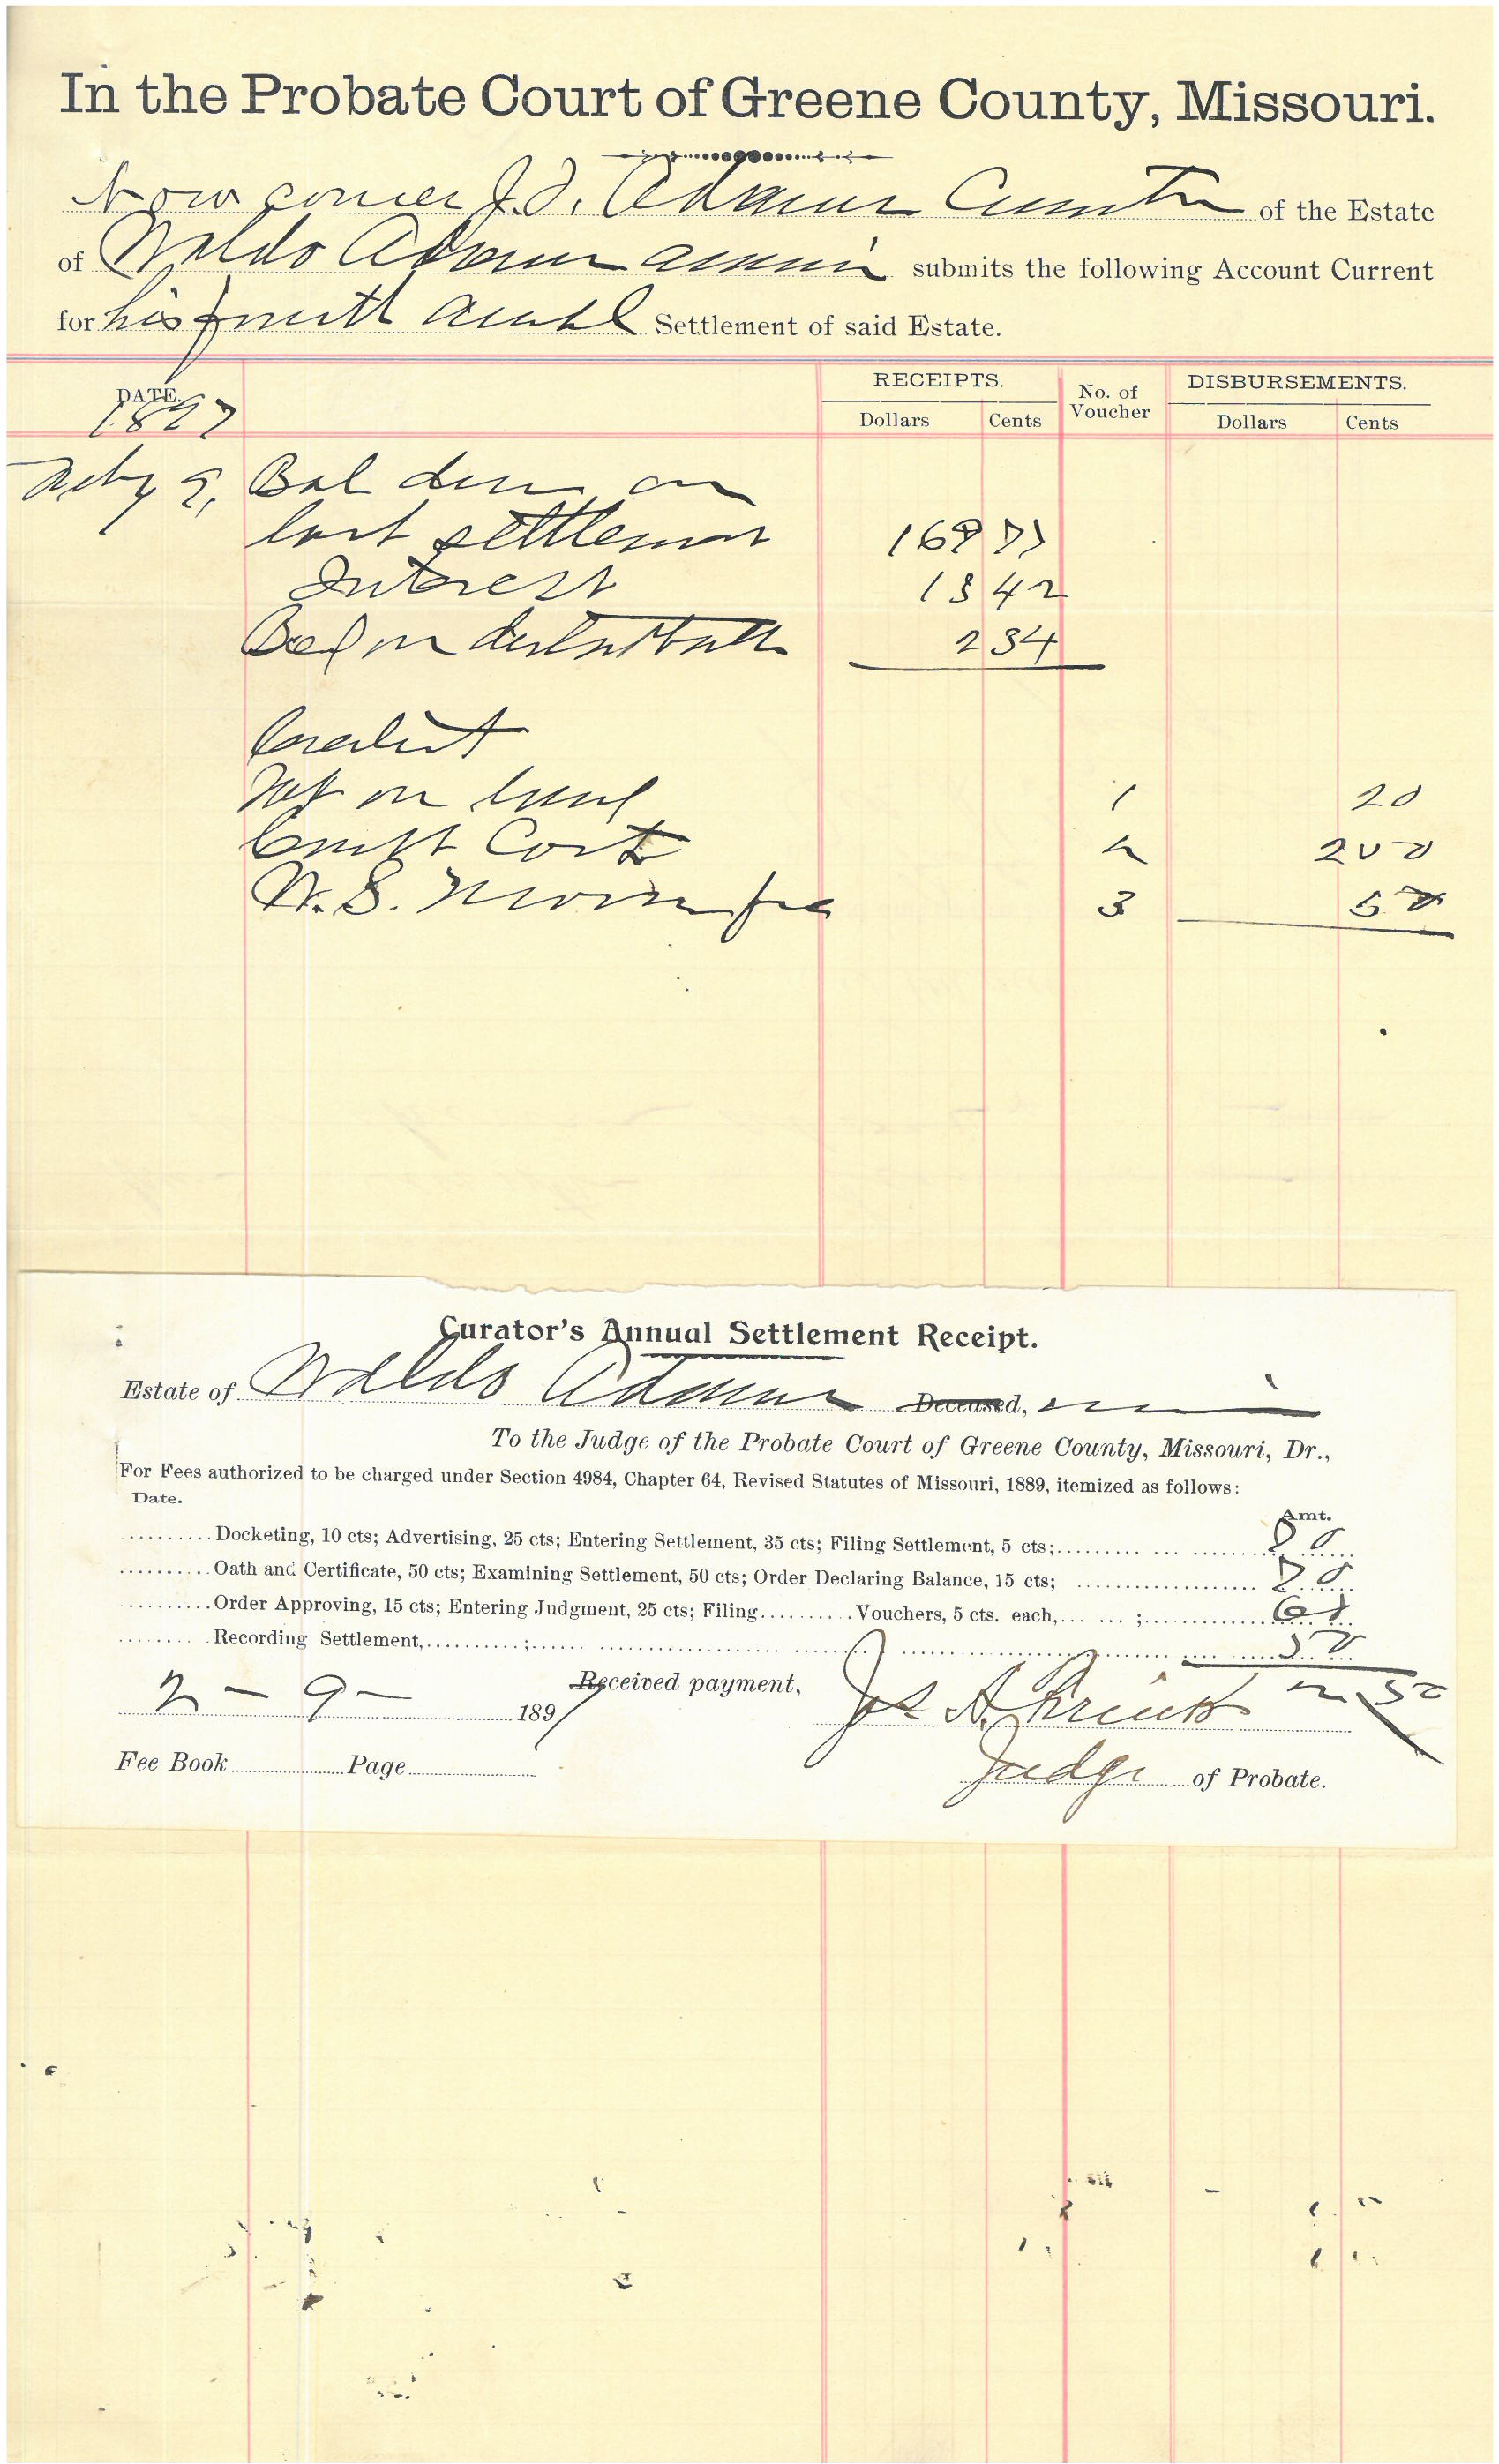 In the Probate Court of Greene County, Missouri.
Now comes J. D. Adams of the Estate
of Waldo Adams submits the following Account Current
for his fourth Settlement of said Estate.
DATE. RECEIPTS. No. of Voucher DISBURSEMENTS.
Dollars Cents Dollars Cents
1897
Bal due on
last settlement
Interest
2 34
Credit
1 20
Court Cost 2 2 00
W. S. fee 3 50
Curator's Annual Settlement Receipt.
Estate of Waldo Adams Deceased,
To the Judge of the Probate Court of Greene County, Missouri, Dr.,
For Fees authorized to be charged under Section 4984, Chapter 64, Revised Statutes of Missouri, 1889, itemized as follows:
Date.
Amt.
Docketing, 10 cts; Advertising, 25 cts; Entering Settlement, 35 cts; Filing Settlement, 5 cts;
Oath and Certificate, 50 cts; Examining Settlement, 50 cts; Order Declaring Balance, 15 cts;
Order Approving, 15 cts; Entering Judgment, 25 cts; Filing Vouchers, 5 cts. each, ;
Recording Settlement, ;
2 - 9 - 1897 Received payment,
Fee Book Page Judge of Probate.